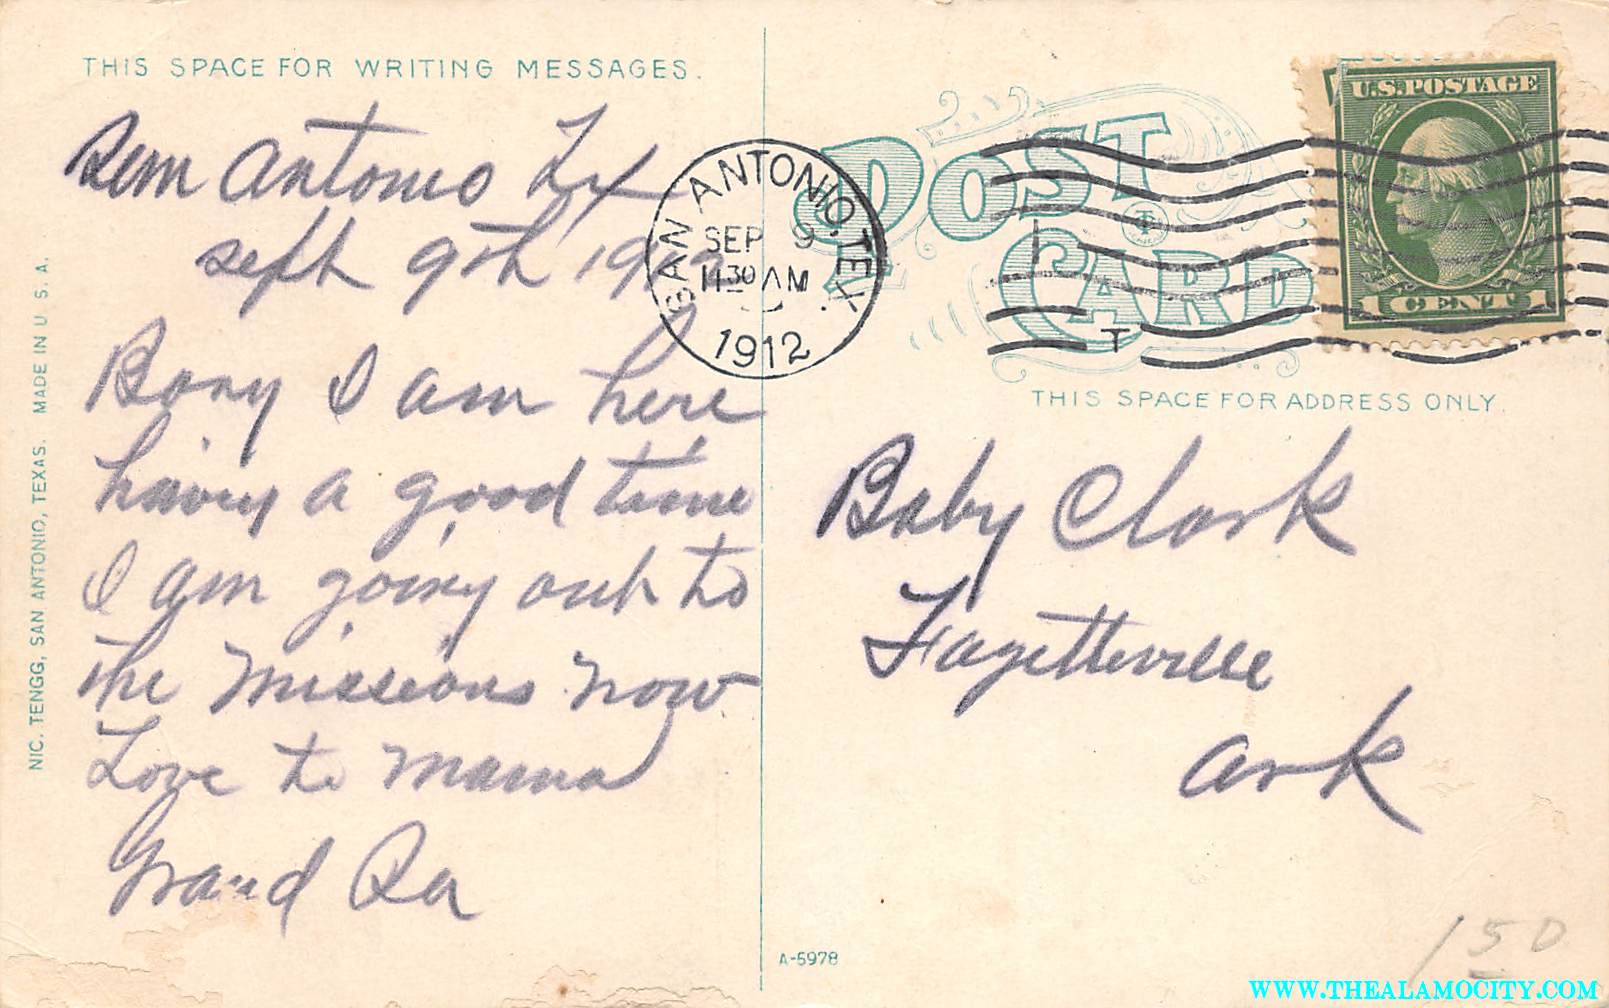 THIS SPACE FOR WRITING MESSAGES.
San Antonio Tx
Sept 9th 1912
I am here
having a good time
I am going out to
the Missions now
Love to mama
Grand Pa
NIC. TENGG, SAN ANTONIO, TEXAS. MADE IN U. S. A.
SAN ANTONIO, TEX.
SEP 9
11 30 AM
1912
POST CARD
U.S. POSTAGE
1 CENT 1
THIS SPACE FOR ADDRESS ONLY.
Baby Clark
Fayetteville
Ark
A-5978
150
WWW.THEALAMOCITY.COM